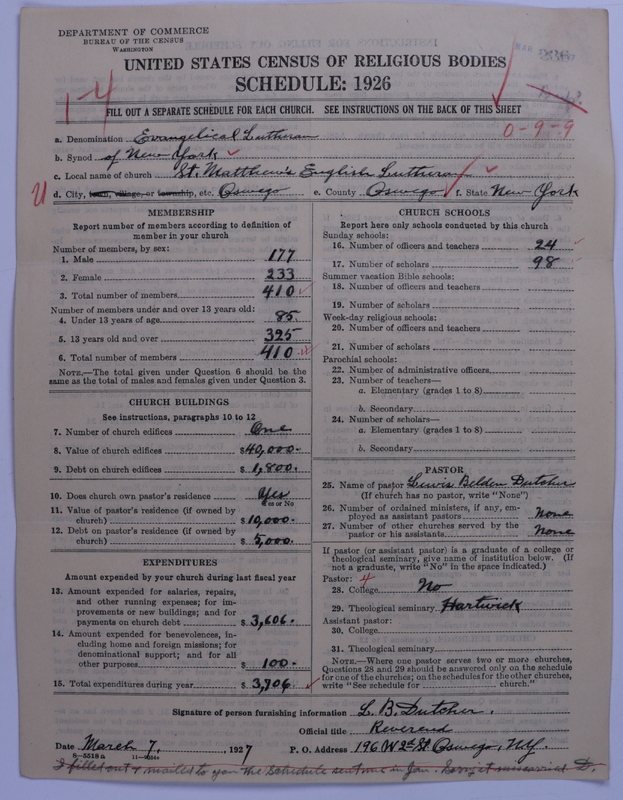 DEPARTMENT OF COMMERCE
BUREAU OF THE CENSUS
WASHINGTON
UNITED STATES CENSUS OF RELIGIOUS BODIES
SCHEDULE: 1926
1-4
FILL OUT A SEPARATE SCHEDULE FOR EACH CHURCH. SEE INSTRUCTIONS ON THE BACK OF THIS SHEET
0-9-9
a. Denomination Evangelical Lutheran
b. Synod of New York
c. Local name of church St. Matthew's English Lutheran
d. City, town, village, or township, etc. Oswego e. County Oswego f. State New York
MEMBERSHIP
Report number of members according to definition of
member in your church
Number of members, by sex:
1. Male 177
2. Female 233
3. Total number of members 410
Number of members under and over 13 years old:
4. Under 13 years of age 85
5. 13 years old and over 325
6. Total number of members 410
NOTE.—The total given under Question 6 should be
same as the total of males and females given under Question 3.
CHURCH BUILDINGS
See instructions, paragraphs 10 to 12
7. Number of church edifices One
8. Value of church edifices $40,000.
9. Debt on church edifices $1,800.
10. Does church own pastor's residence Yes
Yes or No
11. Value of pastor's residence (if owned by
church) $10,000.
12. Debt on pastor's residence (if owned by
church) $5,000.
EXPENDITURES
Amount expended by your church during last fiscal year
13. Amount expended for salaries, repairs,
and other running expenses; for im-
provements or new buildings; and for
payments on church debt $3,606.
14. Amount expended for benevolences, in-
cluding home and foreign missions; for
denominational support; and for all
other purposes $100.
15. Total expenditures during year $3,706
CHURCH SCHOOLS
Report here only schools conducted by this church
Sunday schools:
16. Number of officers and teachers 24
17. Number of scholars 98
Summer vacation Bible schools:
18. Number of officers and teachers
19. Number of scholars
Week-day religious schools:
20. Number of officers and teachers
21. Number of scholars
Parochial schools:
22. Number of administrative officers
23. Number of teachers—
a. Elementary (grades 1 to 8)
b. Secondary
24. Number of scholars—
a. Elementary (grades 1 to 8)
b. Secondary
PASTOR
25. Name of pastor Lewis Belden Dutcher
(If church has no pastor, write "None")
26. Number of ordained ministers, if any, em-
ployed as assistant pastors None
27. Number of other churches served by the
pastor or his assistants None
If pastor (or assistant pastor) is a graduate of a college or
theological seminary, give name of institution below. (If
not a graduate, write "No" in the space indicated.)
Pastor: 4
28. College No
29. Theological seminary Hartwick
Assistant pastor:
30. College
31. Theological seminary
NOTE.—Where one pastor serves two or more churches,
Questions 28 and 29 should be answered only on the schedule
for one of the churches; on the schedules for the other churches,
write "See schedule for church."
Signature of person furnishing information L. B. Dutcher.
Official title Reverend
Date March 7, 1927 P. O. Address 196 W 2nd St. Oswego, N.Y.
8-5518a
I filled out & mailed to you the schedule sent me in Jan. Sorry it miscarried D.